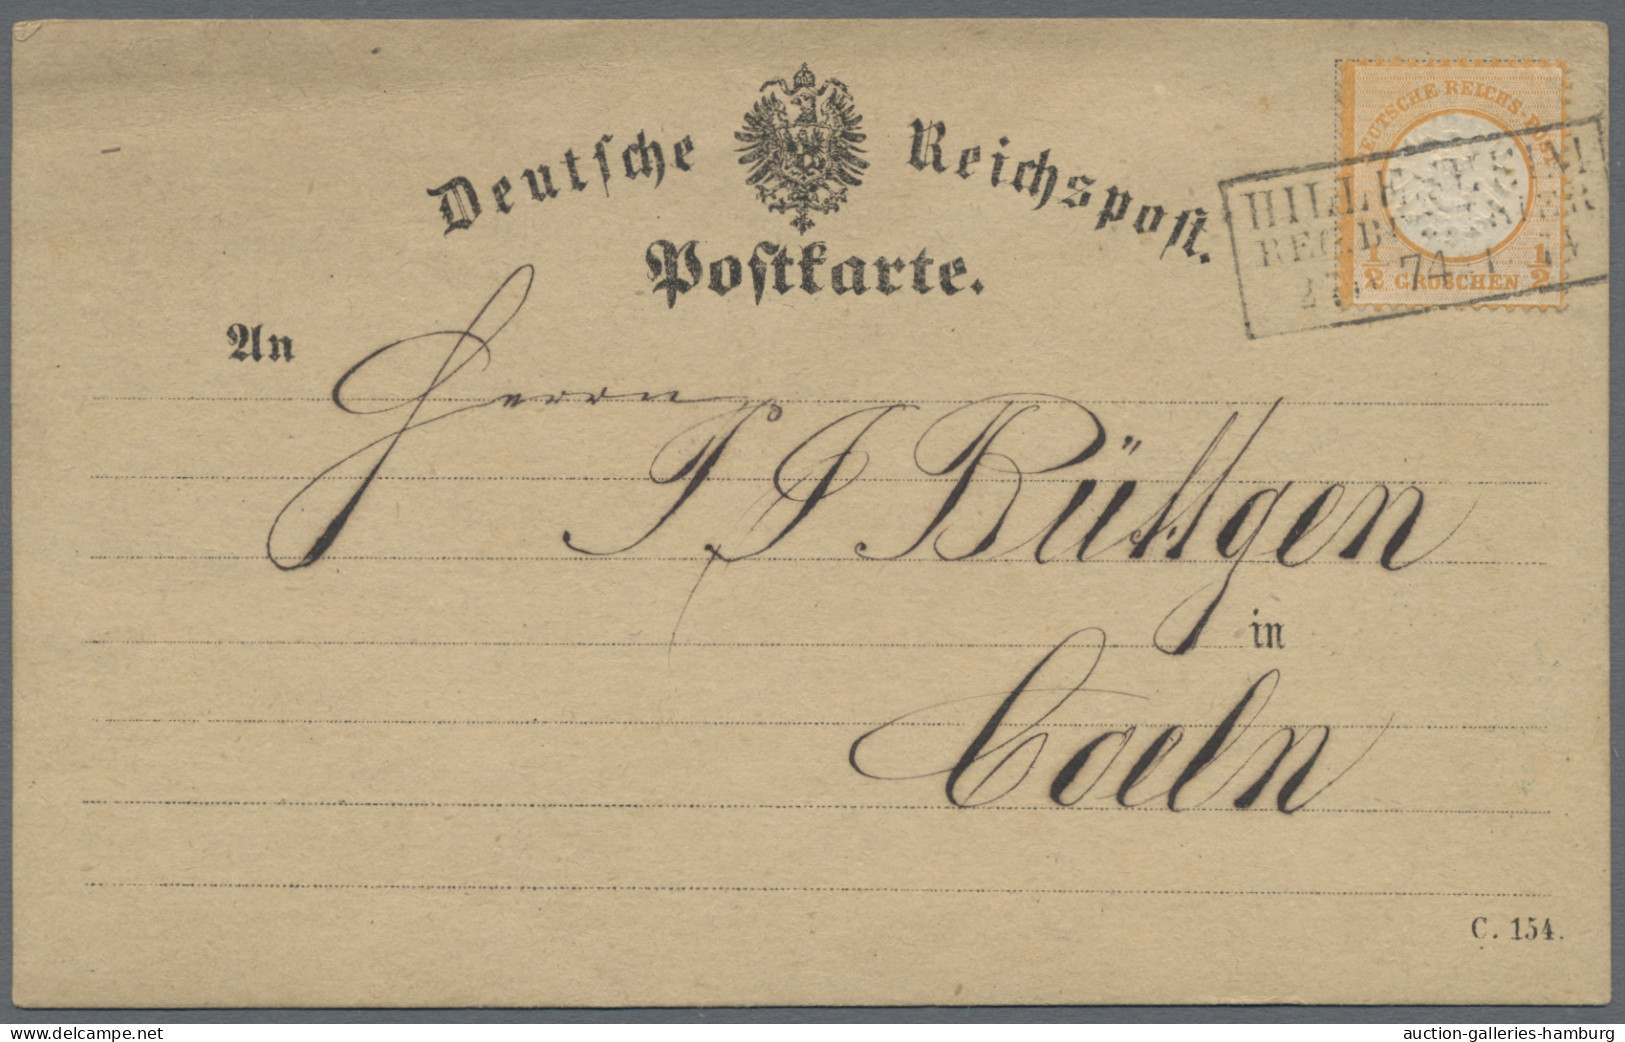 Deutsche Reichspost.
Postkarte.
DEUTSCHE REICHS-POST
1/2 GROSCHEN 1/2
74
An
Herrn
P J Büttgen
in
Coeln
C. 154.
www.delcampe.net
auction-galleries-hamburg